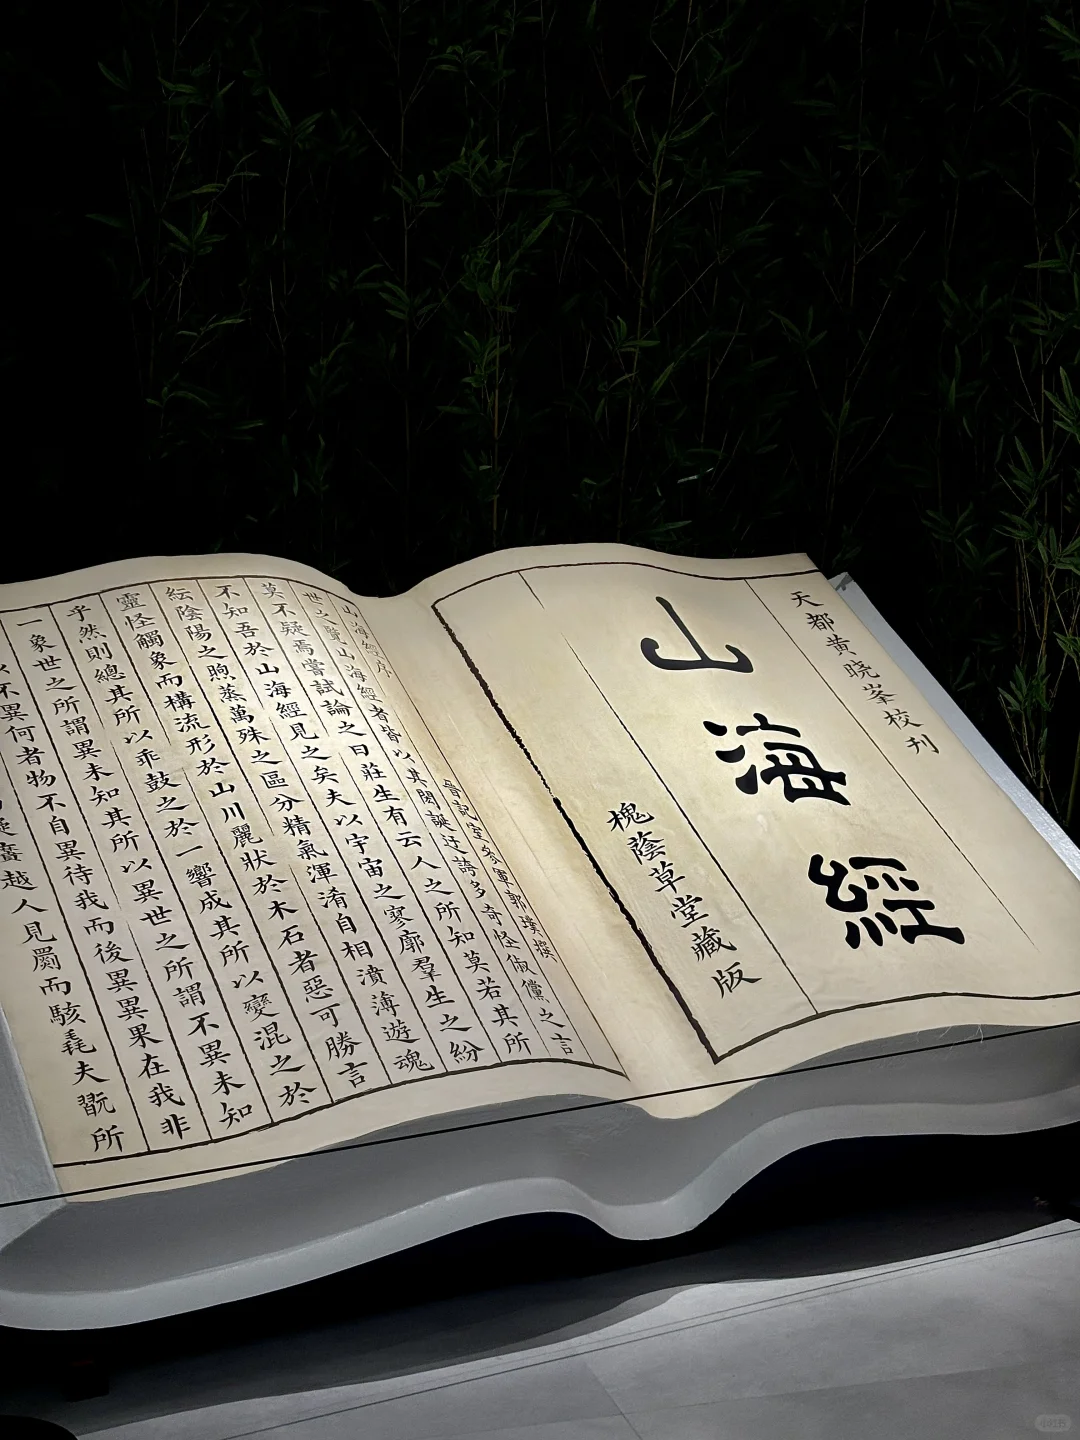 天都黄晓峯校刊
山海經
槐蔭草堂藏版
山海經序
晉記室參軍郭璞撰
世之覽山海經者皆以其閎誕迂誇多奇怪俶儻之言
莫不疑焉嘗試論之曰莊生有云人之所知莫若其所
不知吾於山海經見之矣夫以宇宙之寥廓羣生之紛
紜陰陽之煦蒸萬殊之區分精氣渾淆自相濆薄遊魂
靈怪觸象而構流形於山川麗狀於木石者惡可勝言
乎然則總其所以乖鼓之於一響成其所以變混之於
一象世之所謂異未知其所以異世之所謂不異未知
以不異何者物不自異待我而後異異果在我非
越人見罽而駭毳夫翫所
小红书